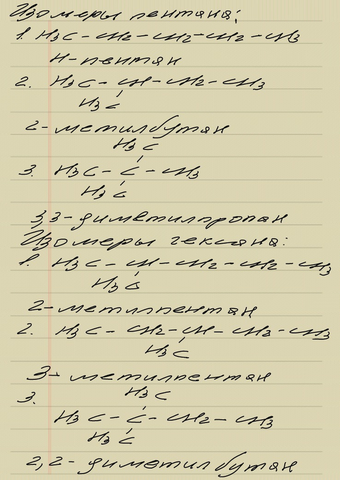 Изомеры пентана:
1. H₃C - CH₂ - CH₂ - CH₂ - CH₃
н-пентан
2. H₃C - CH - CH₂ - CH₃
H₃C
2-метилбутан
H₃C
3. H₃C - C - CH₃
H₃C
3,3-диметилпропан
Изомеры гексана:
1. H₃C - CH - CH₂ - CH₂ - CH₃
H₃C
2-метилпентан
2. H₃C - CH₂ - CH - CH₂ - CH₃
H₃C
3-метилпентан
3. H₃C
H₃C - C - CH₂ - CH₃
H₃C
2,2-диметилбутан